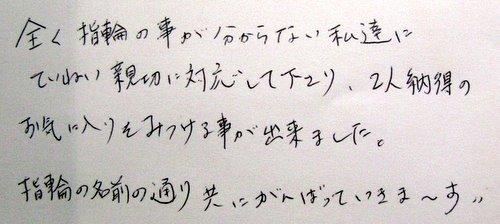 全く指輪の事が分からない私達に
ていねい親切に対応して下さり、2人納得の
お気に入りをみつける事が出来ました。
指輪の名前の通り共にがんばっていきま〜す〃